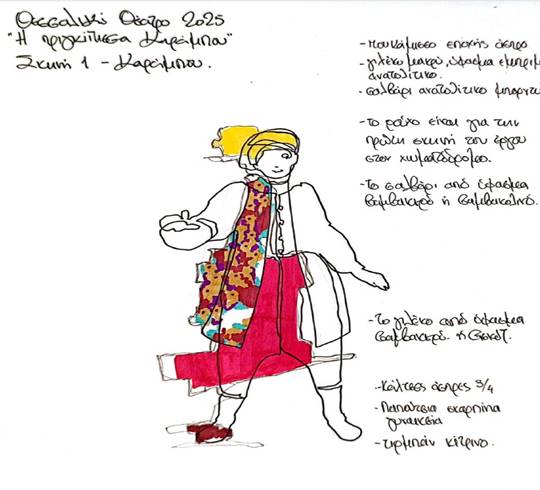 Θεσσαλικό Θέατρο 2025
"Η πριγκίπησσα Καράμπου"
Σκηνή 1 - Καράμπου.
- Πουκάμισο εποχής άσπρο
- γιλέκο μακρύ, ύφασμα εμπριμέ
ανατολίτικο.
- σαλβάρι ανατολίτικο μπορντώ
- Το ρούχο είναι για την
πρώτη σκηνή του έργου
στον χωματόδρομο.
- Το σαλβάρι από ύφασμα
βαμβακερό ή
- Το γιλέκο από ύφασμα
βαμβακερό
- Κάλτσες άσπρες 3/4
- Παπούτσια σκαρπίνια
γυναικεία
- τιρμπάν κίτρινο.